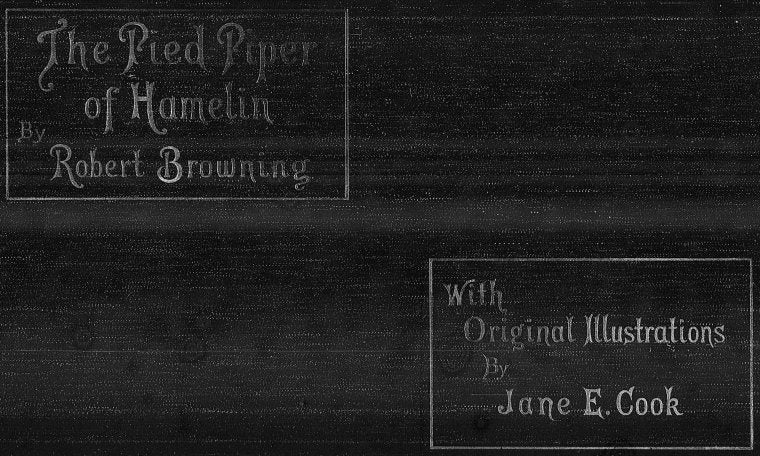 The Pied Piper
of Hamelin
By
Robert Browning
With
Original Illustrations
By
Jane E. Cook